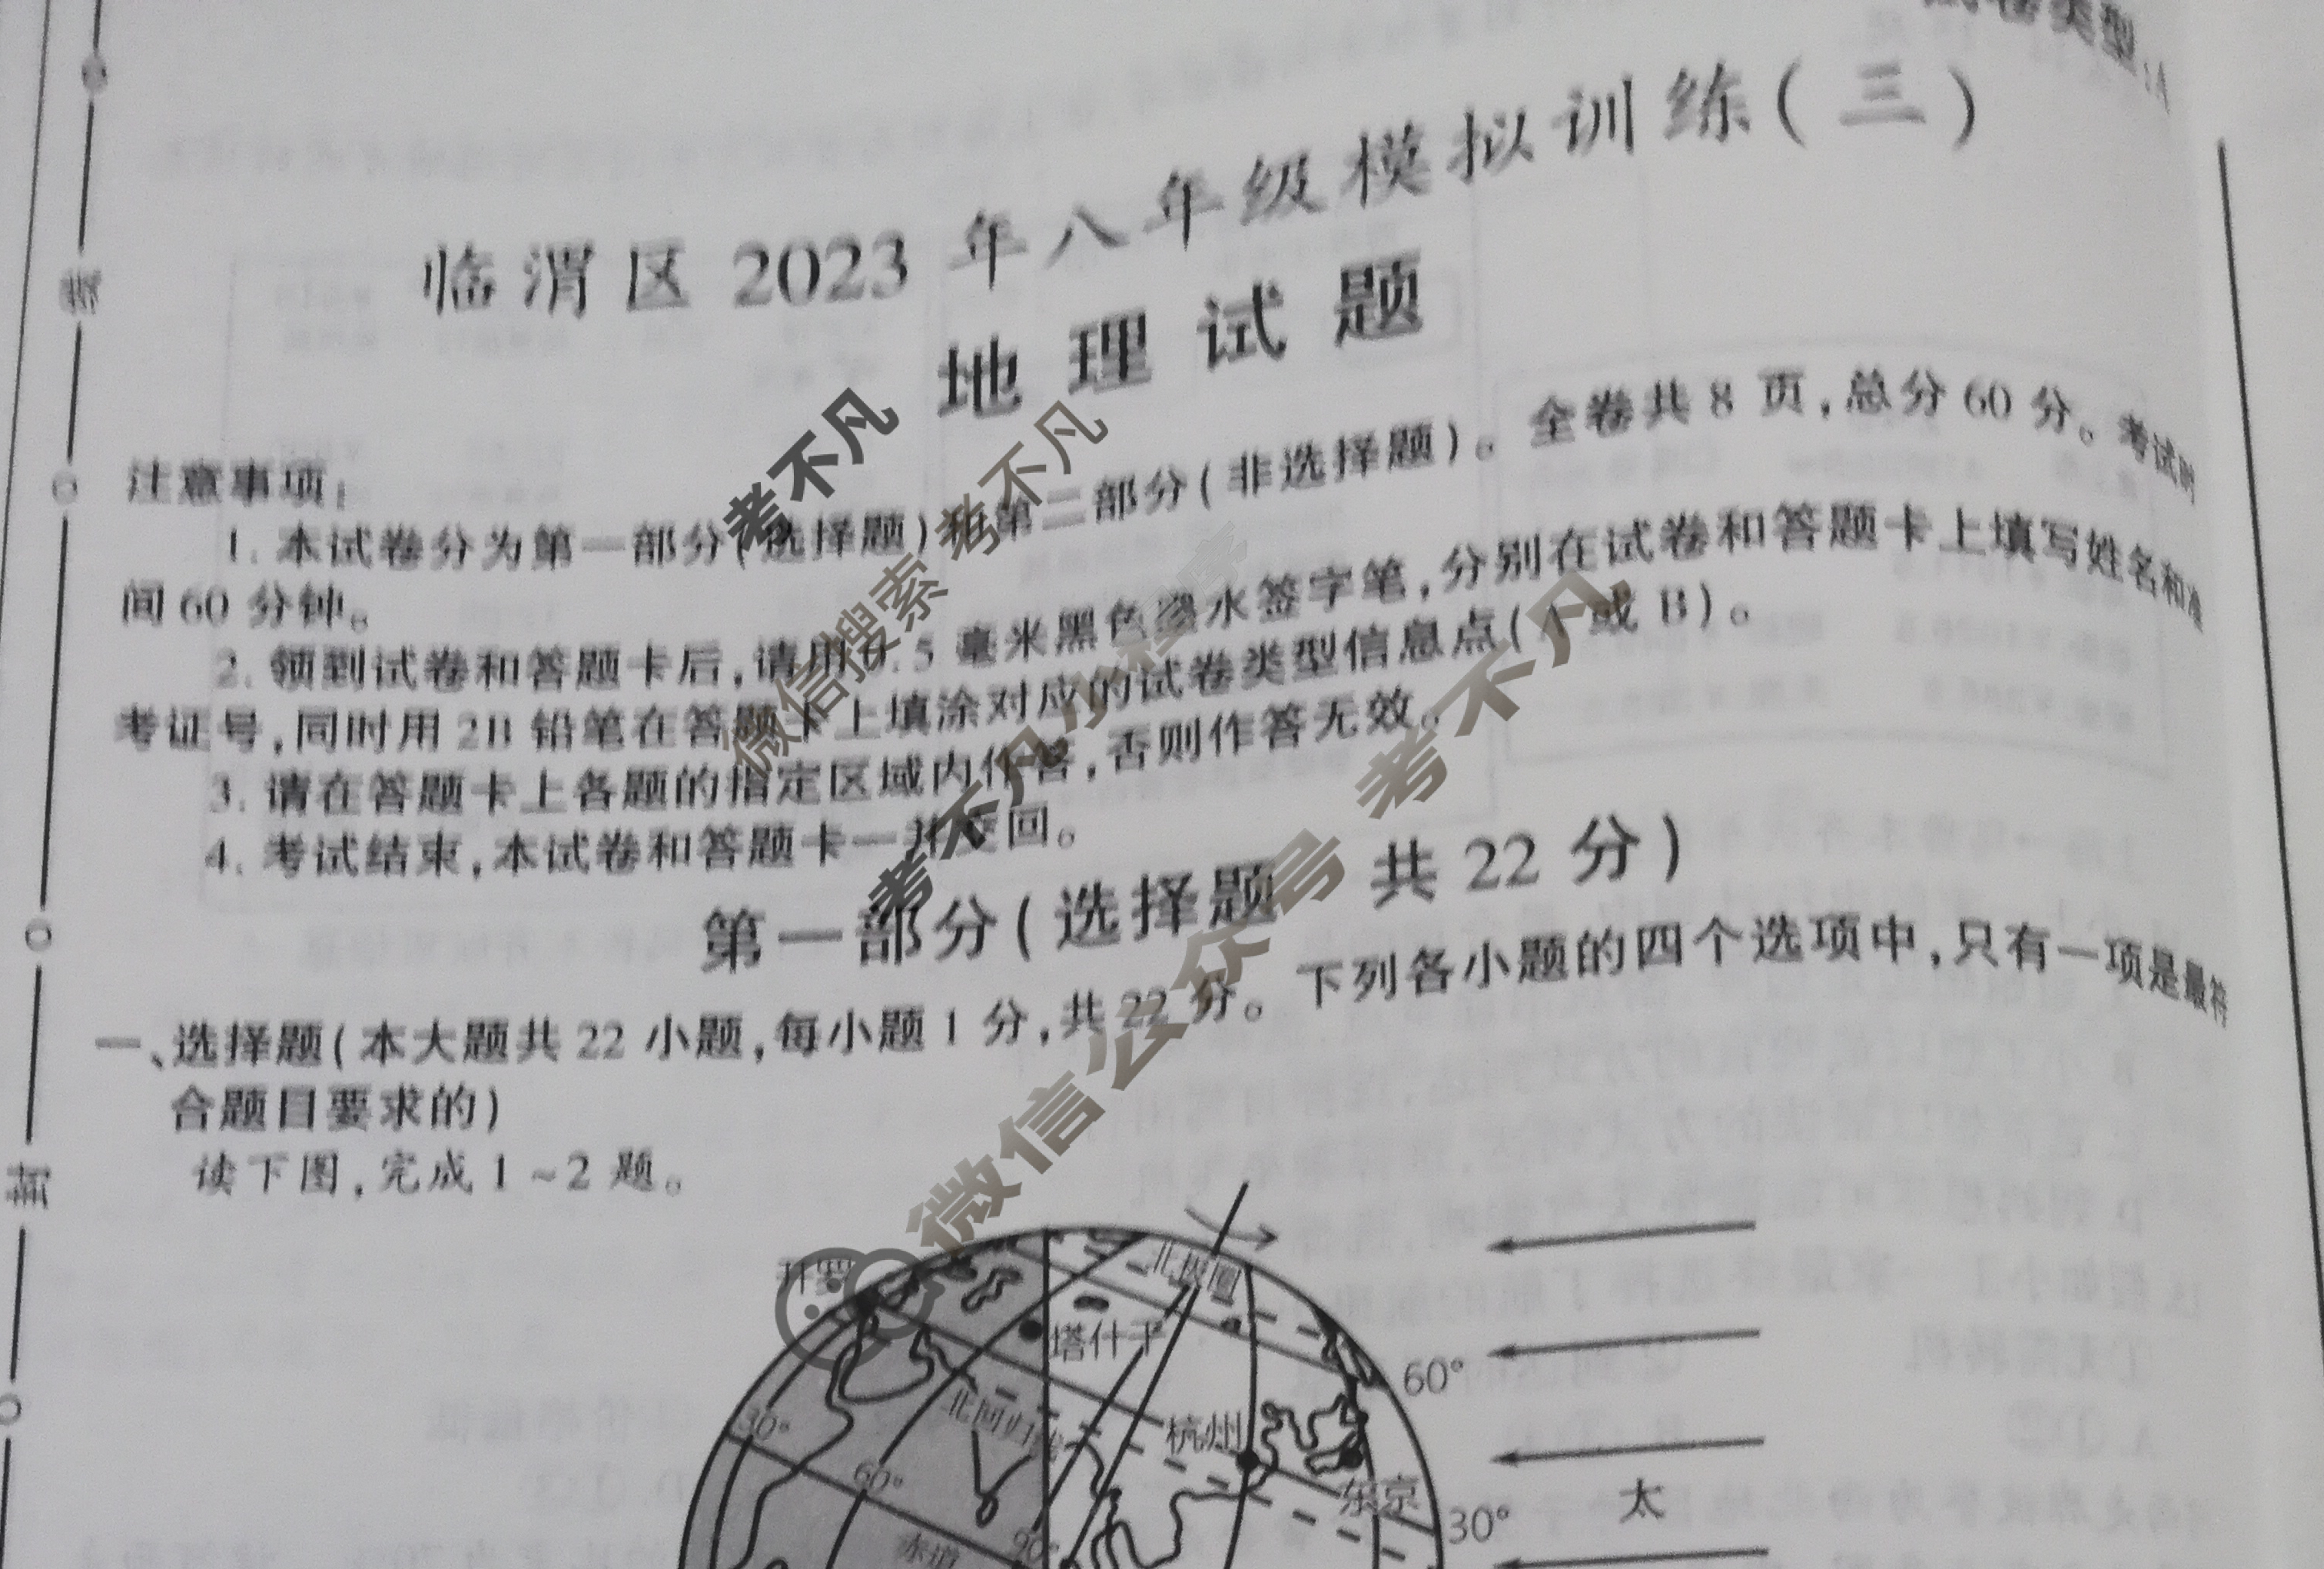 试卷类型:A
临渭区2023年八年级模拟训练(三)
地理试题
注意事项:
1.本试卷分为第一部分(选择题)和第二部分(非选择题)。全卷共8页,总分60分。考试时
间60分钟。
2.领到试卷和答题卡后,请用0.5毫米黑色墨水签字笔,分别在试卷和答题卡上填写姓名和准
考证号,同时用2B铅笔在答题卡上填涂对应的试卷类型信息点(A或B)。
3.请在答题卡上各题的指定区域内作答,否则作答无效。
4.考试结束,本试卷和答题卡一并交回。
第一部分(选择题 共22分)
一、选择题(本大题共22小题,每小题1分,共22分。下列各小题的四个选项中,只有一项是最符
合题目要求的)
读下图,完成1~2题。
开罗
北极圈
塔什干
60°
北回归线
30°
杭州
60°
东京
30°
太
赤道
90°
考不凡
微信搜索 考不凡
考不凡小程序
微信公众号 考不凡